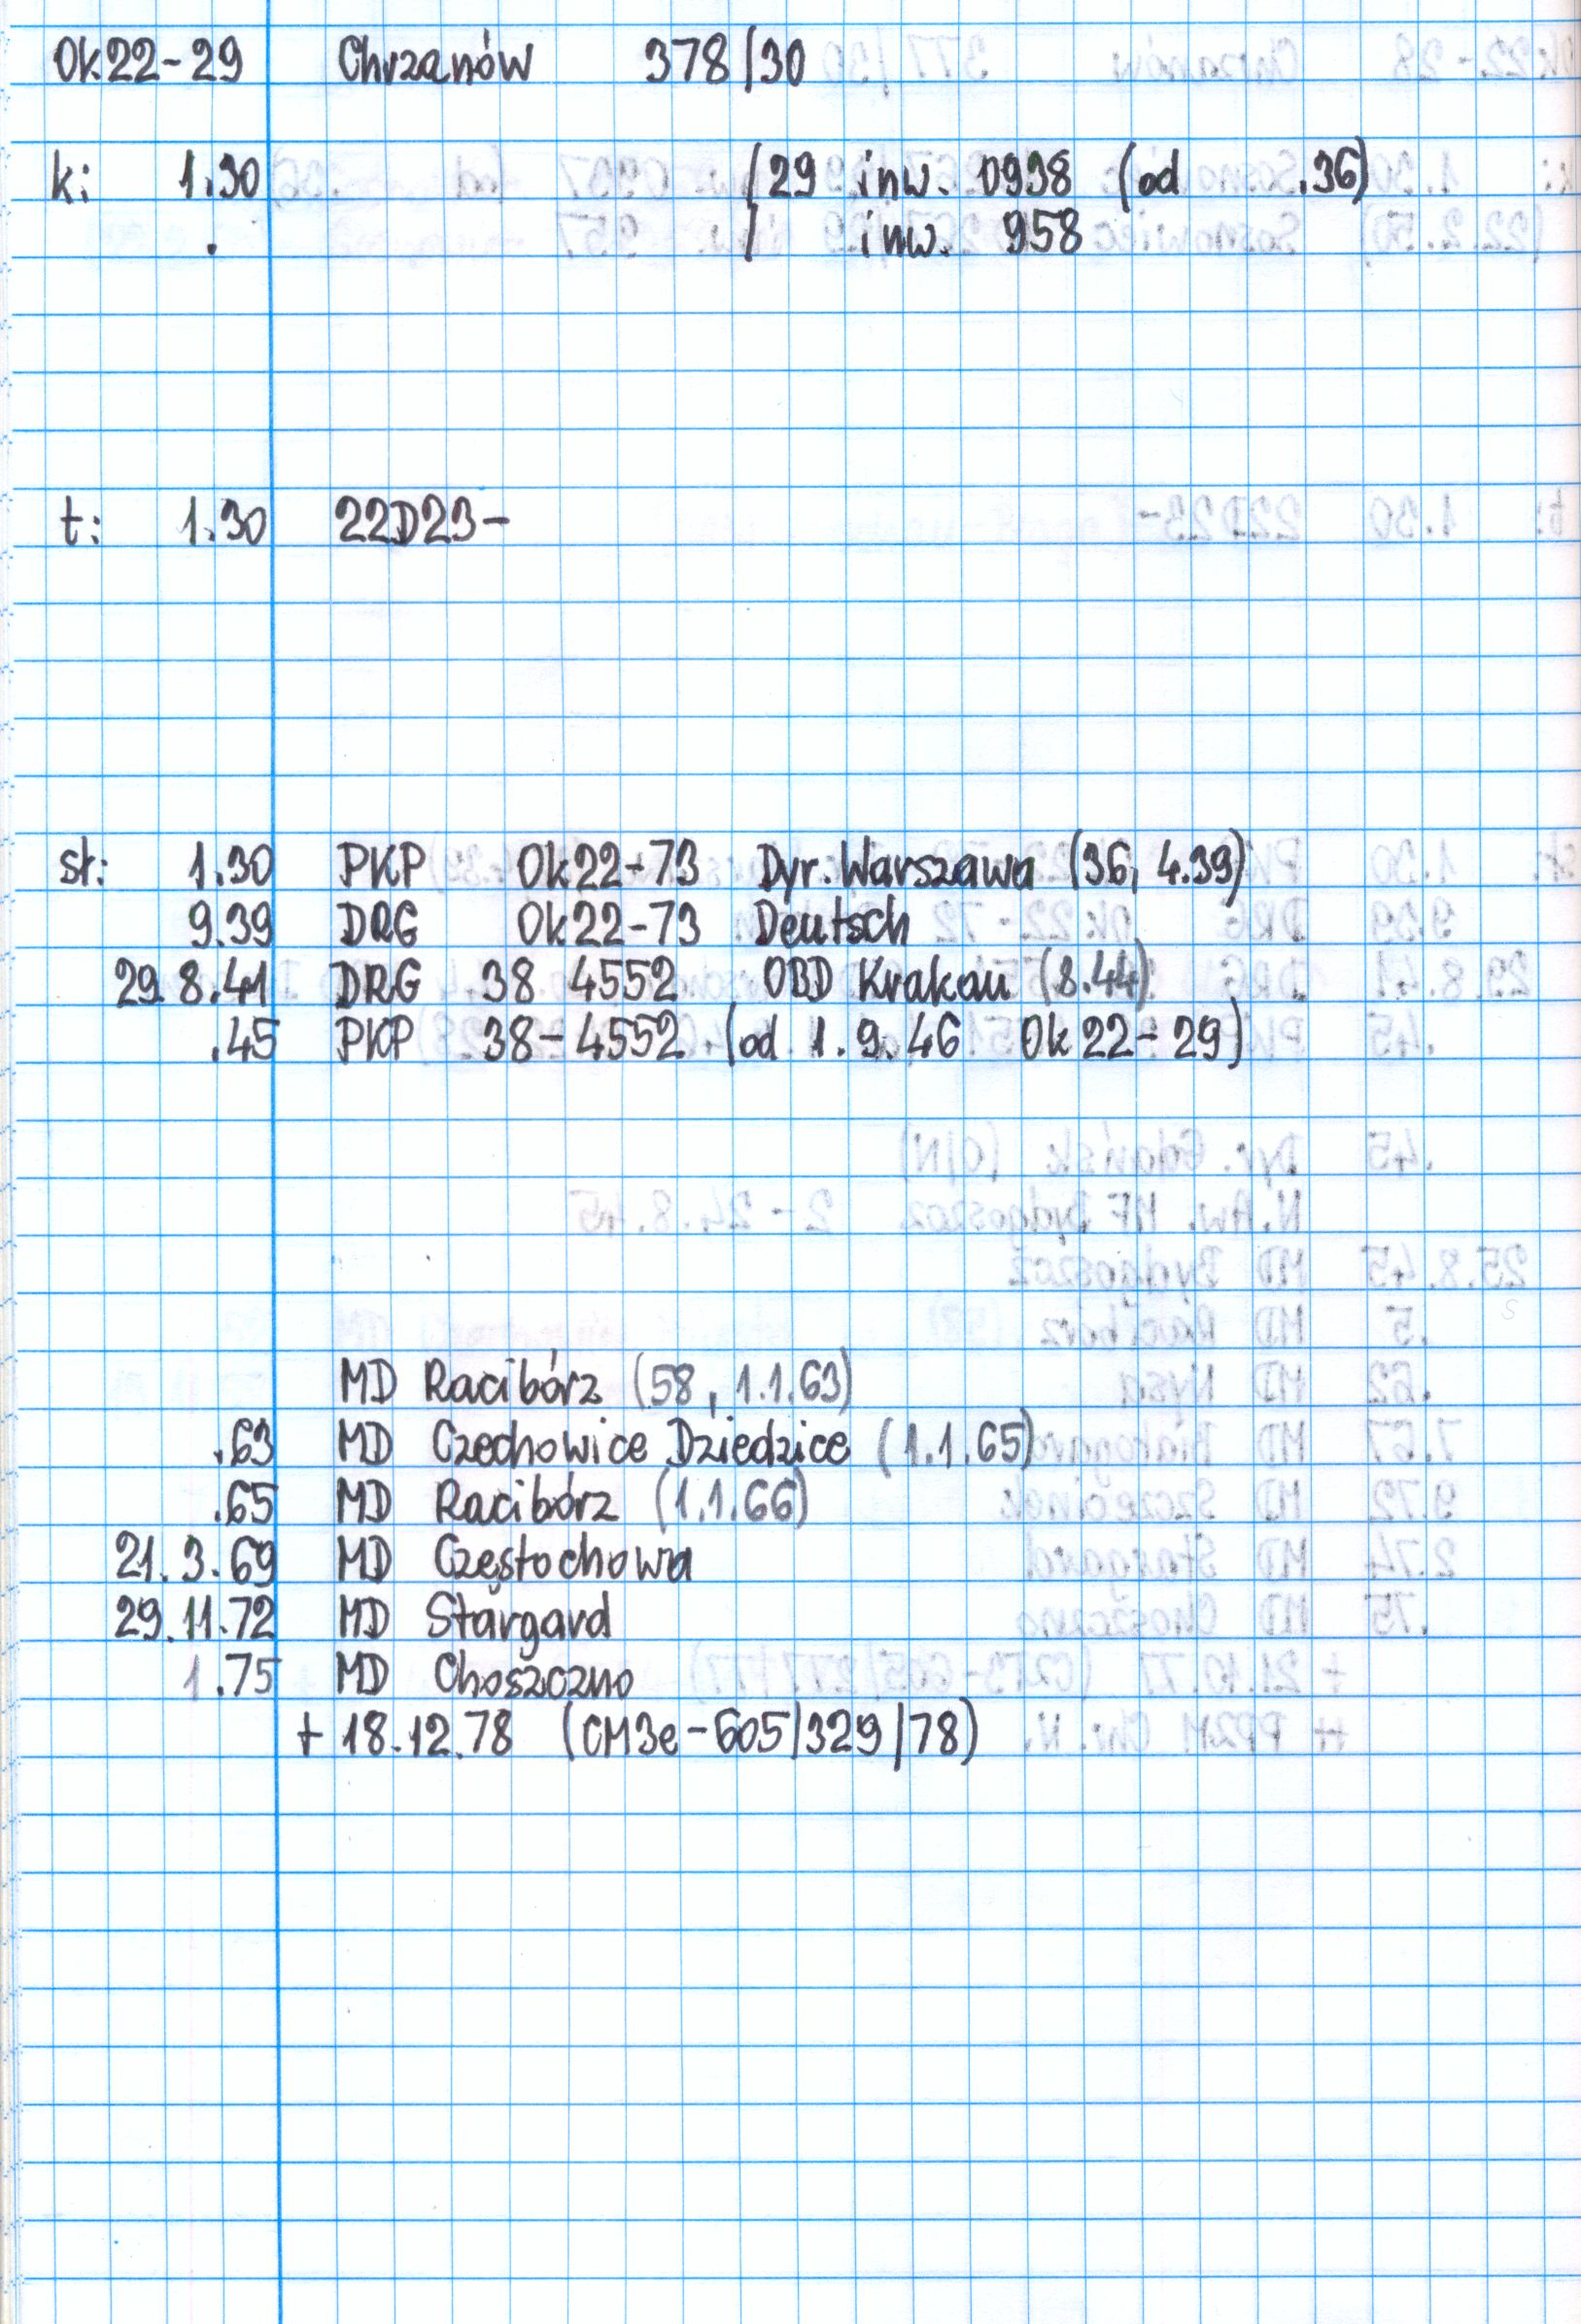 Ok22-29 Chrzanów 378/30
k: 1.30 /29 inw. 0938 (od .36)
. / inw. 958
t: 1.30 22D23-
st: 1.30 PKP Ok22-73 Dyr. Warszawa (36, 4.39)
9.39 DRG Ok22-73 Deutsch
29.8.41 DRG 38 4552 OBD Krakau (8.44)
.45 PKP 38-4552 (od 1.9.46 Ok22-29)
MD Racibórz (58, 1.1.63)
.63 MD Czechowice Dziedzice (1.1.65)
.65 MD Racibórz (1.1.66)
21.3.69 MD Częstochowa
29.11.72 MD Stargard
1.75 MD Choszczno
+ 18.12.78 (CM3e-605/329/78)